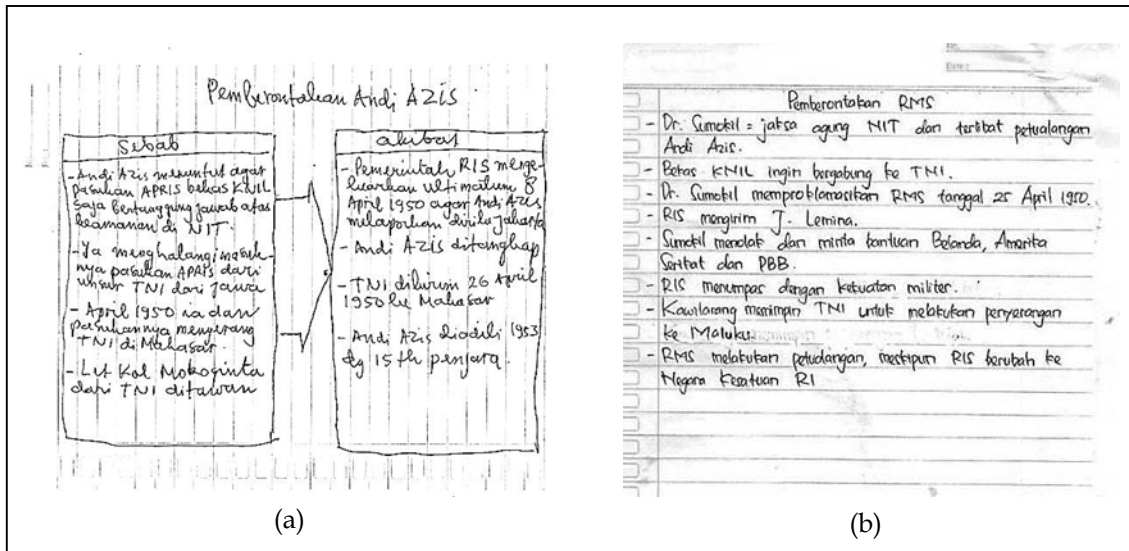 Pemberontakan Andi AZiS
Sebab
- Andi Azis menuntut agar
pasukan APRIS bekas KNIL
saja bertanggung jawab atas
keamanan di NIT.
- Ia menghalangi masuk-
nya pasukan APRIS dari
unsur TNI dari Jawa
- April 1950 ia dan
pasukannya menyerang
TNI di Makasar.
- Let Kol Mokoginta
dari TNI ditawan
akibat
- Pemerintah RIS menge-
luarkan ultimatum 8
April 1950 agar Andi Azis
melaporkan diri ke Jakarta
- Andi AZis ditangkap
- TNI dikirim 26 April
1950 ke Makasar
- Andi Azis diadili 1953
dg 15 th penjara.
(a)
Pemberontakan RMS
- Dr. Sumokil = jaksa agung NIT dan terlibat petualangan
Andi Azis.
- Bekas KNIL ingin bergabung ke TNI.
- Dr. Sumokil memproklamasikan RMS tanggal 25 April 1950.
- RIS mengirim J. Lemina.
- Sumokil menolak dan minta bantuan Belanda, Amerika
Serikat dan PBB.
- RIS menumpas dengan kekuatan militer.
- Kawilarang memimpin TNI untuk melakukan penyerangan
ke Maluku
- RMS melakukan petualangan, meskipun RIS berubah ke
Negara Kesatuan RI
(b)